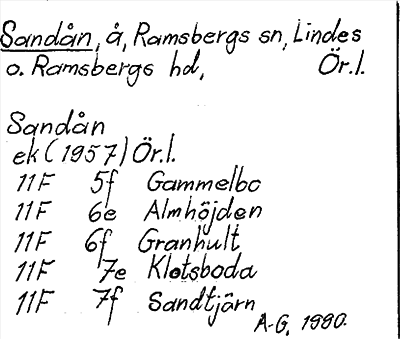 Sandån, å, Ramsbergs sn, Lindes
o. Ramsbergs hd, Ör.l.
Sandån
ek (1957) Ör.l.
11F 5f Gammelbo
11F 6e Almhöjden
11F 6f Granhult
11F 7e Klotsboda
11F 7f Sandtjärn
A-G, 1990.